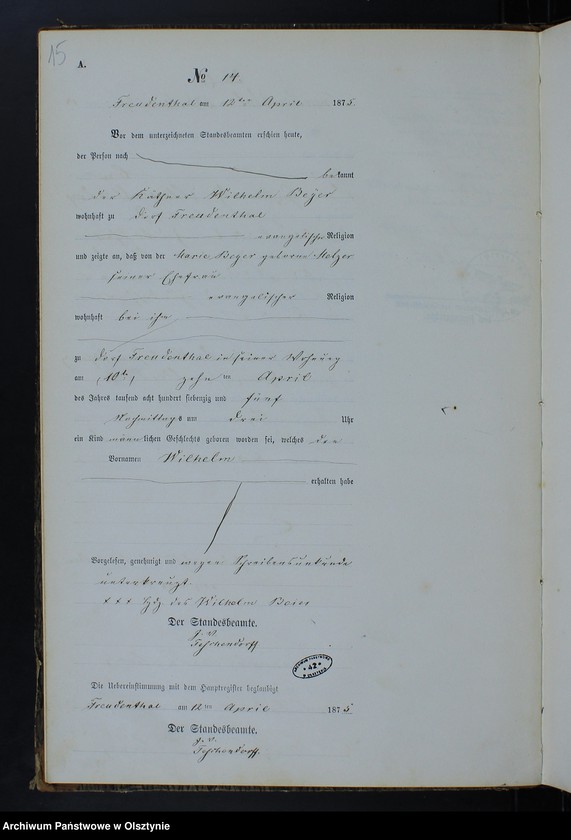 15
A.
№ 14.
Freudenthal am 12ten April 1875
Vor dem unterzeichneten Standesbeamten erschien heute,
der Person nach
bekannt
der Käthner Wilhelm Beyer
wohnhaft zu dorf Freudenthal
evangelischer Religion
und zeigte an, daß von der Marie Beyer geborne
seiner Ehefrau
evangelischer Religion
wohnhaft bei ihm
zu dorf Freudenthal in seiner Wohnung
am (10te) zehn ten April
des Jahres tausend acht hundert siebenzig und fünf
Nachmittags um drei Uhr
ein Kind männlichen Geschlechts geboren worden sei, welches den
Vornamen Wilhelm
erhalten habe
Vorgelesen, genehmigt und wegen Schreibensunkunde
unterkreuzt.
+++ Hdz. des Wilhelm Beier
Der Standesbeamte.
J. V.
Feschendorff
Die Uebereinstimmung mit dem Hauptregister beglaubigt
Freudenthal am 12ten April 1875
Der Standesbeamte.
J. V.
Feschendorff.
42
Archiwum Państwowe w Olsztynie